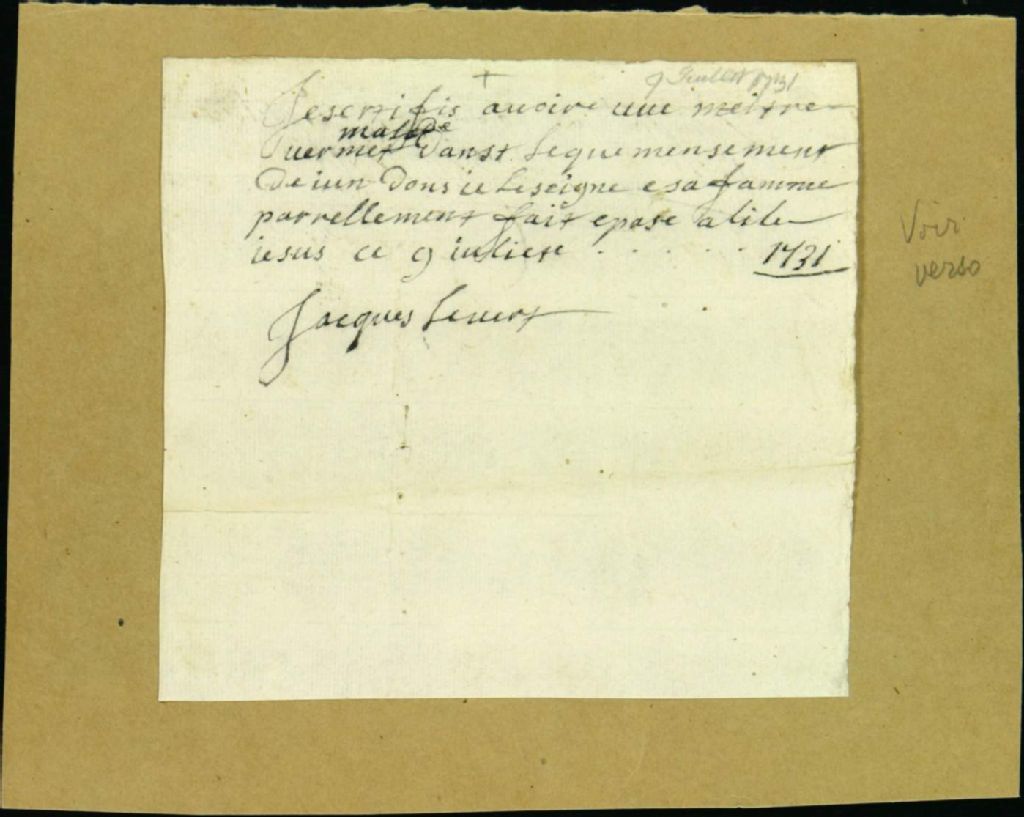 +
9 Juillet 1731
Jesertifis auoire uue meitre
malade
uermet danst lequemensement
de iun dons ie leseigne e sa famme
parrellement fait epase a lile
iesus ce 9 iuliest . . . . . . 1731
Jacques Leuert
Voir
verso